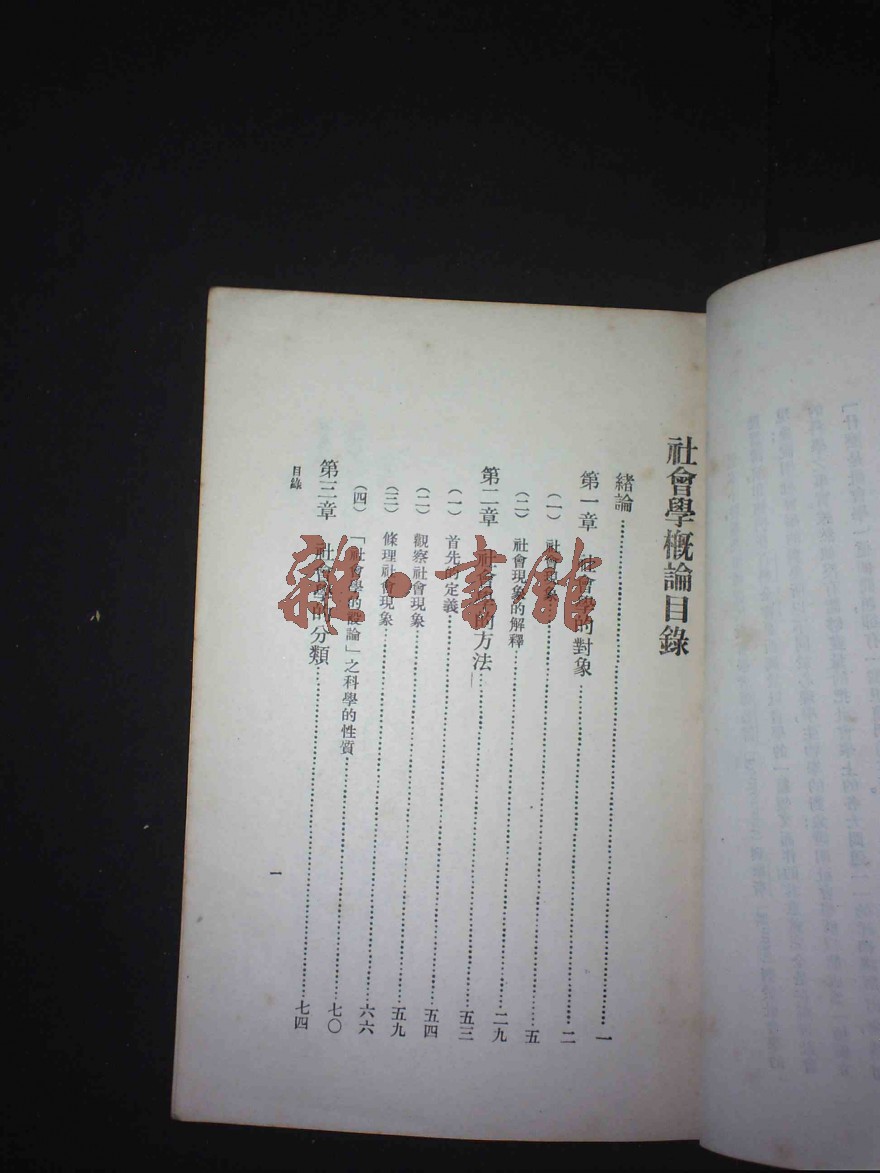 社會學概論目錄
緒論……一
第一章 社會學的對象……二
(一) 社會現象……五
(二) 社會現象的解釋……二九
第二章 社會學的方法……五三
(一) 首先的定義……五四
(二) 觀察社會現象……五九
(三) 條理社會現象……六六
(四) 「社會學的設論」之科學的性質……七〇
第三章 社會學的分類……七四
目錄
一
雜·書館